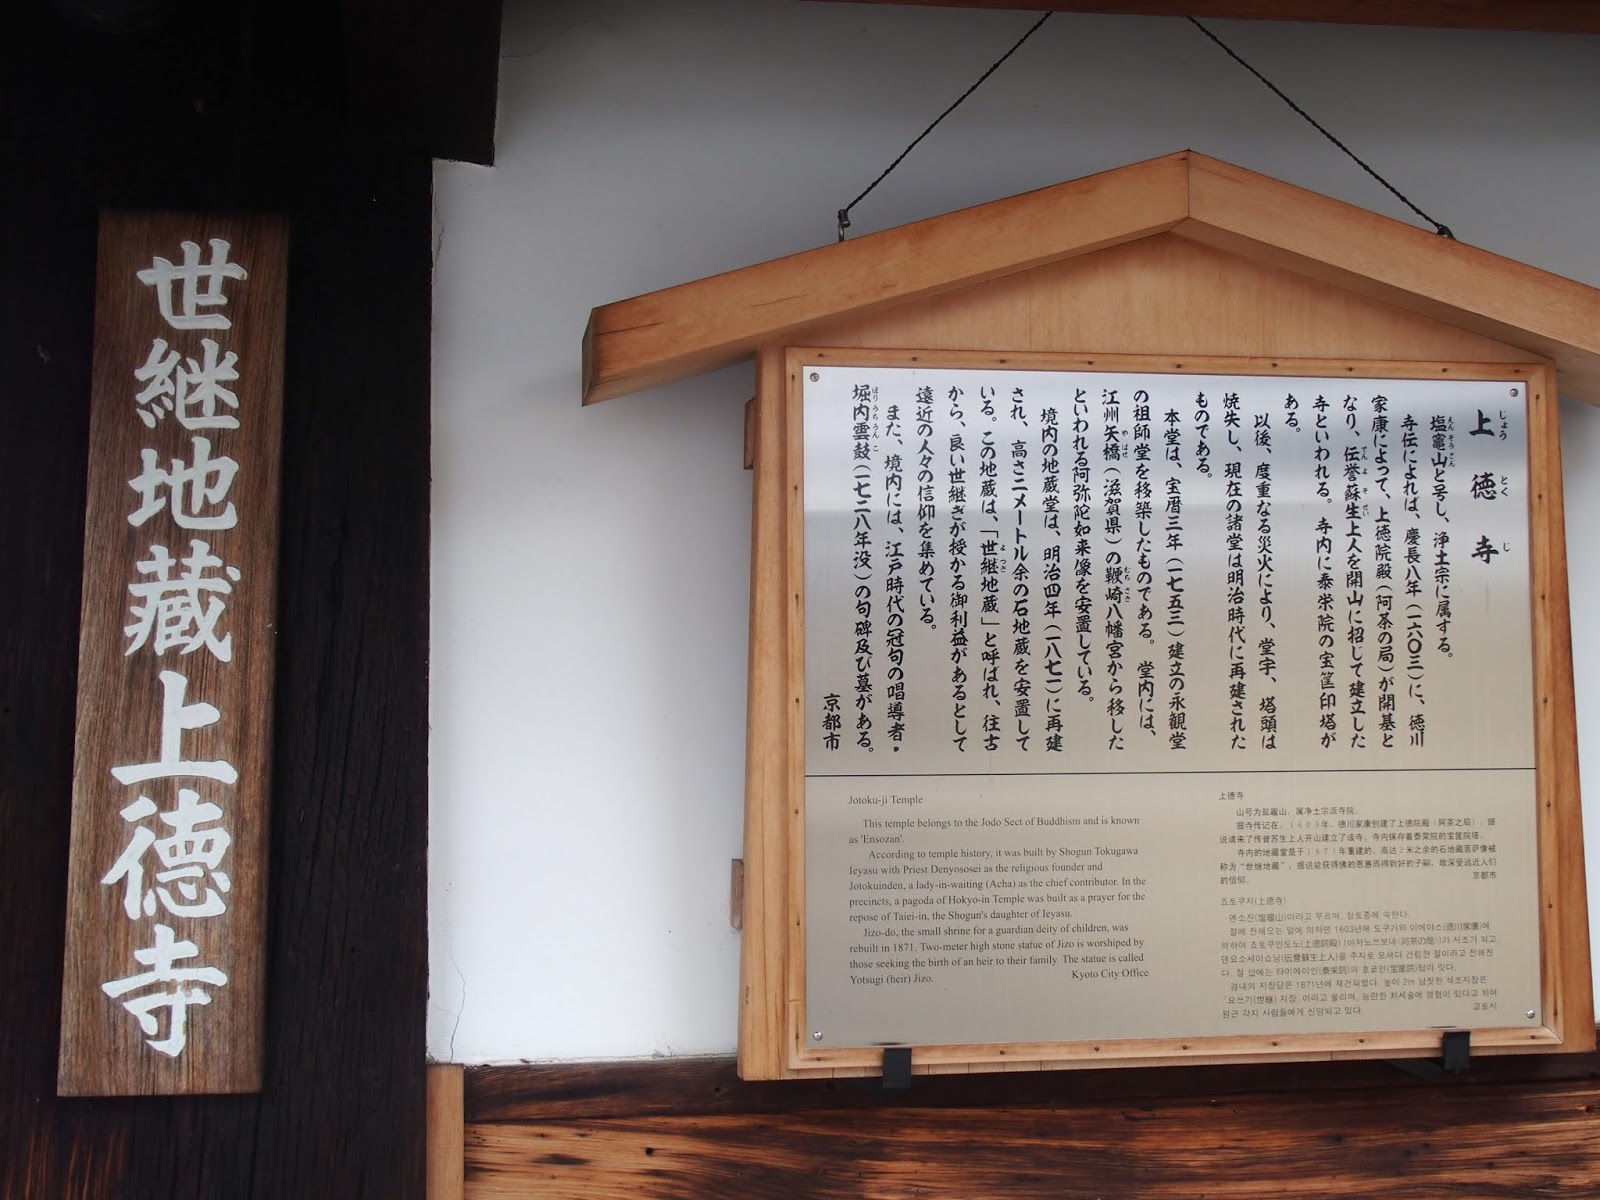 世継地蔵上徳寺
上徳寺
じょうとくじ
塩竈山と号し、浄土宗に属する。
えんそうざん
寺伝によれば、慶長八年(一六〇三)に、徳川
家康によって、上徳院殿(阿茶の局)が開基と
なり、伝誉蘇生上人を開山に招じて建立した
でんよそせい
寺といわれる。寺内に泰栄院の宝筐印塔が
ある。
以後、度重なる災火により、堂宇、塔頭は
焼失し、現在の諸堂は明治時代に再建された
ものである。
本堂は、宝暦三年(一七五三)建立の永観堂
の祖師堂を移築したものである。堂内には、
江州矢橋(滋賀県)の鞭崎八幡宮から移した
やばせ
むちさき
といわれる阿弥陀如来像を安置している。
境内の地蔵堂は、明治四年(一八七一)に再建
され、高さ二メートル余の石地蔵を安置して
いる。この地蔵は、「世継地蔵」と呼ばれ、往古
よつぎ
から、良い世継ぎが授かる御利益があるとして
遠近の人々の信仰を集めている。
また、境内には、江戸時代の冠句の唱導者・
堀内雲鼓(一七二八年没)の句碑及び墓がある。
ほりうちうんこ
京都市
Jotoku-ji Temple
This temple belongs to the Jodo Sect of Buddhism and is known
as 'Ensozan'.
According to temple history, it was built by Shogun Tokugawa
Ieyasu with Priest Denyososei as the religious founder and
Jotokuinden, a lady-in-waiting (Acha) as the chief contributor. In the
precincts, a pagoda of Hokyo-in Temple was built as a prayer for the
repose of Taiei-in, the Shogun's daughter of Ieyasu.
Jizo-do, the small shrine for a guardian deity of children, was
rebuilt in 1871. Two-meter high stone statue of Jizo is worshiped by
those seeking the birth of an heir to their family. The statue is called
Yotsugi (heir) Jizo.
Kyoto City Office
上德寺
山号为盐竈山，属净土宗派寺院。
据寺传记在，1603年，德川家康创建了上德院殿（阿茶之局），据
说请来了传誉苏生上人开山建立了该寺。寺内保存着泰荣院的宝筐院塔。
寺内的地藏堂是于1871年重建的，高达2米之余的石地藏菩萨像被
称为“世继地藏”，据说能获得佛的恩惠而得到好的子嗣，故深受远近人们
的信仰。
京都市
죠토쿠지(上德寺)
엔소잔(塩竈山)이라고 부르며, 정토종에 속한다.
절에 전해오는 말에 의하면 1603년에 도쿠가와 이에야스(德川家康)에
의하여 죠토쿠인도노(上德院殿) (아차노쓰보네<阿茶の局>)가 시조가 되고,
덴요소세이쇼닝(伝誉蘇生上人)을 주지로 모셔다 건립한 절이라고 전해진
다. 절 안에는 타이에이인(泰栄院)의 호쿄인(宝筐院)탑이 있다.
경내의 지장당은 1871년에 재건되었다. 높이 2m 남짓한 석조지장은
「요쓰기(世継) 지장」이라고 불리며, 능란한 처세술에 영험이 있다고 하여
원근 각지 사람들에게 신앙되고 있다.
교토시